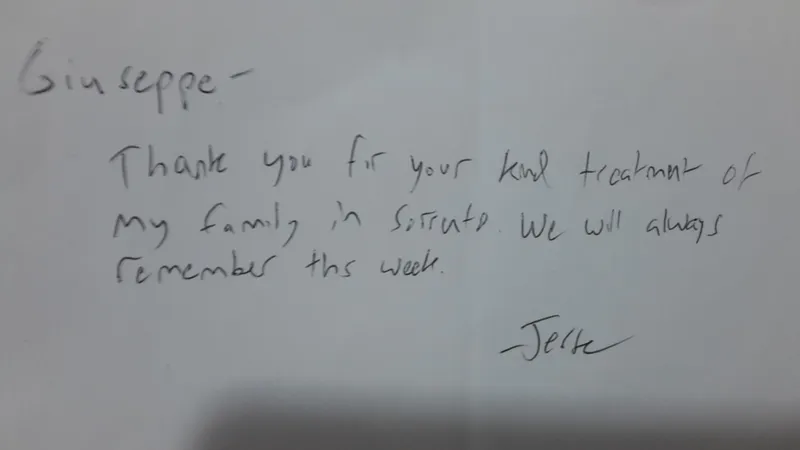 Giuseppe -
Thank you for your kind treatment of
my family in Sorrento. We will always
remember this week.
- Jesse